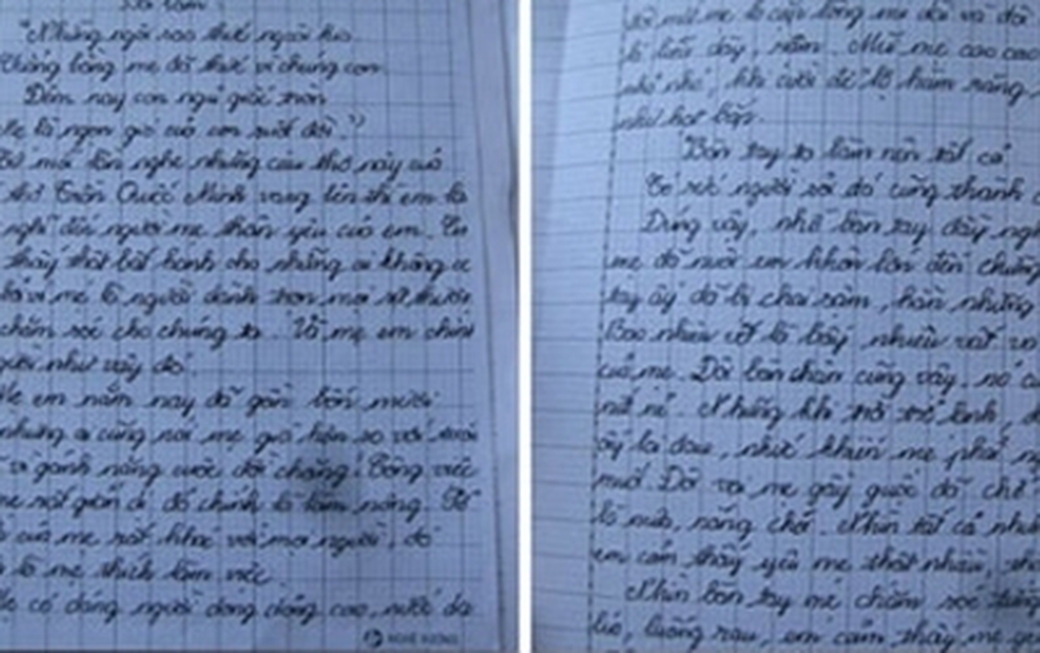 Bài làm
"Những ngôi sao thức ngoài kia
Chẳng bằng mẹ đã thức vì chúng con
Đêm nay con ngủ giấc tròn
Mẹ là ngọn gió của con suốt đời."
mỗi lần nghe những câu thơ này của
thơ Trần Quốc Minh vang lên thì em lại
nghĩ đến người mẹ thân yêu của em.
thấy thật bất hạnh cho những ai không
mẹ là người dành trọn mọi
chăm sóc cho chúng ta. Và mẹ em chín
người như vậy đó
Mẹ em năm nay đã gần bốn mươi
nhưng ai cũng nói mẹ già hơn so với tuổi
vì gánh nặng cuộc đời chăng! Công việc
mẹ rất giản dị đó chính là làm nông.
của mẹ rất khác với mọi người, đó
là mẹ thích làm việc.
Mẹ có dáng người dong dỏng cao, nước da
mẹ là cặp lông mi dài và đôi
lá liễu dày, rậm. Mũi mẹ cao cao
nhỏ nhỏ, khi cười để lộ hàm răng
như hạt bắp.
"Bàn tay ta làm nên tất cả
Có sức người sỏi đá cũng thành
Đúng vậy, nhờ bàn tay đầy
mẹ đã nuôi em khôn lớn đến chừng
tay ấy đã bị chai sạm, hằn những
Bao nhiêu là bấy nhiêu vất
của mẹ. Đôi bàn chân cũng vậy, nó
nứt nẻ. Những khi trở trời lạnh,
ấy lại đau, nhức khiến mẹ phải
muối. Đôi vai mẹ gầy guộc đã chở
là mưa, nắng chói. Nhìn tất cả như
em cảm thấy yêu mẹ thật nhiều,
Nhìn bàn tay mẹ chăm sóc từng
lúa, luống rau, em cảm thấy mẹ